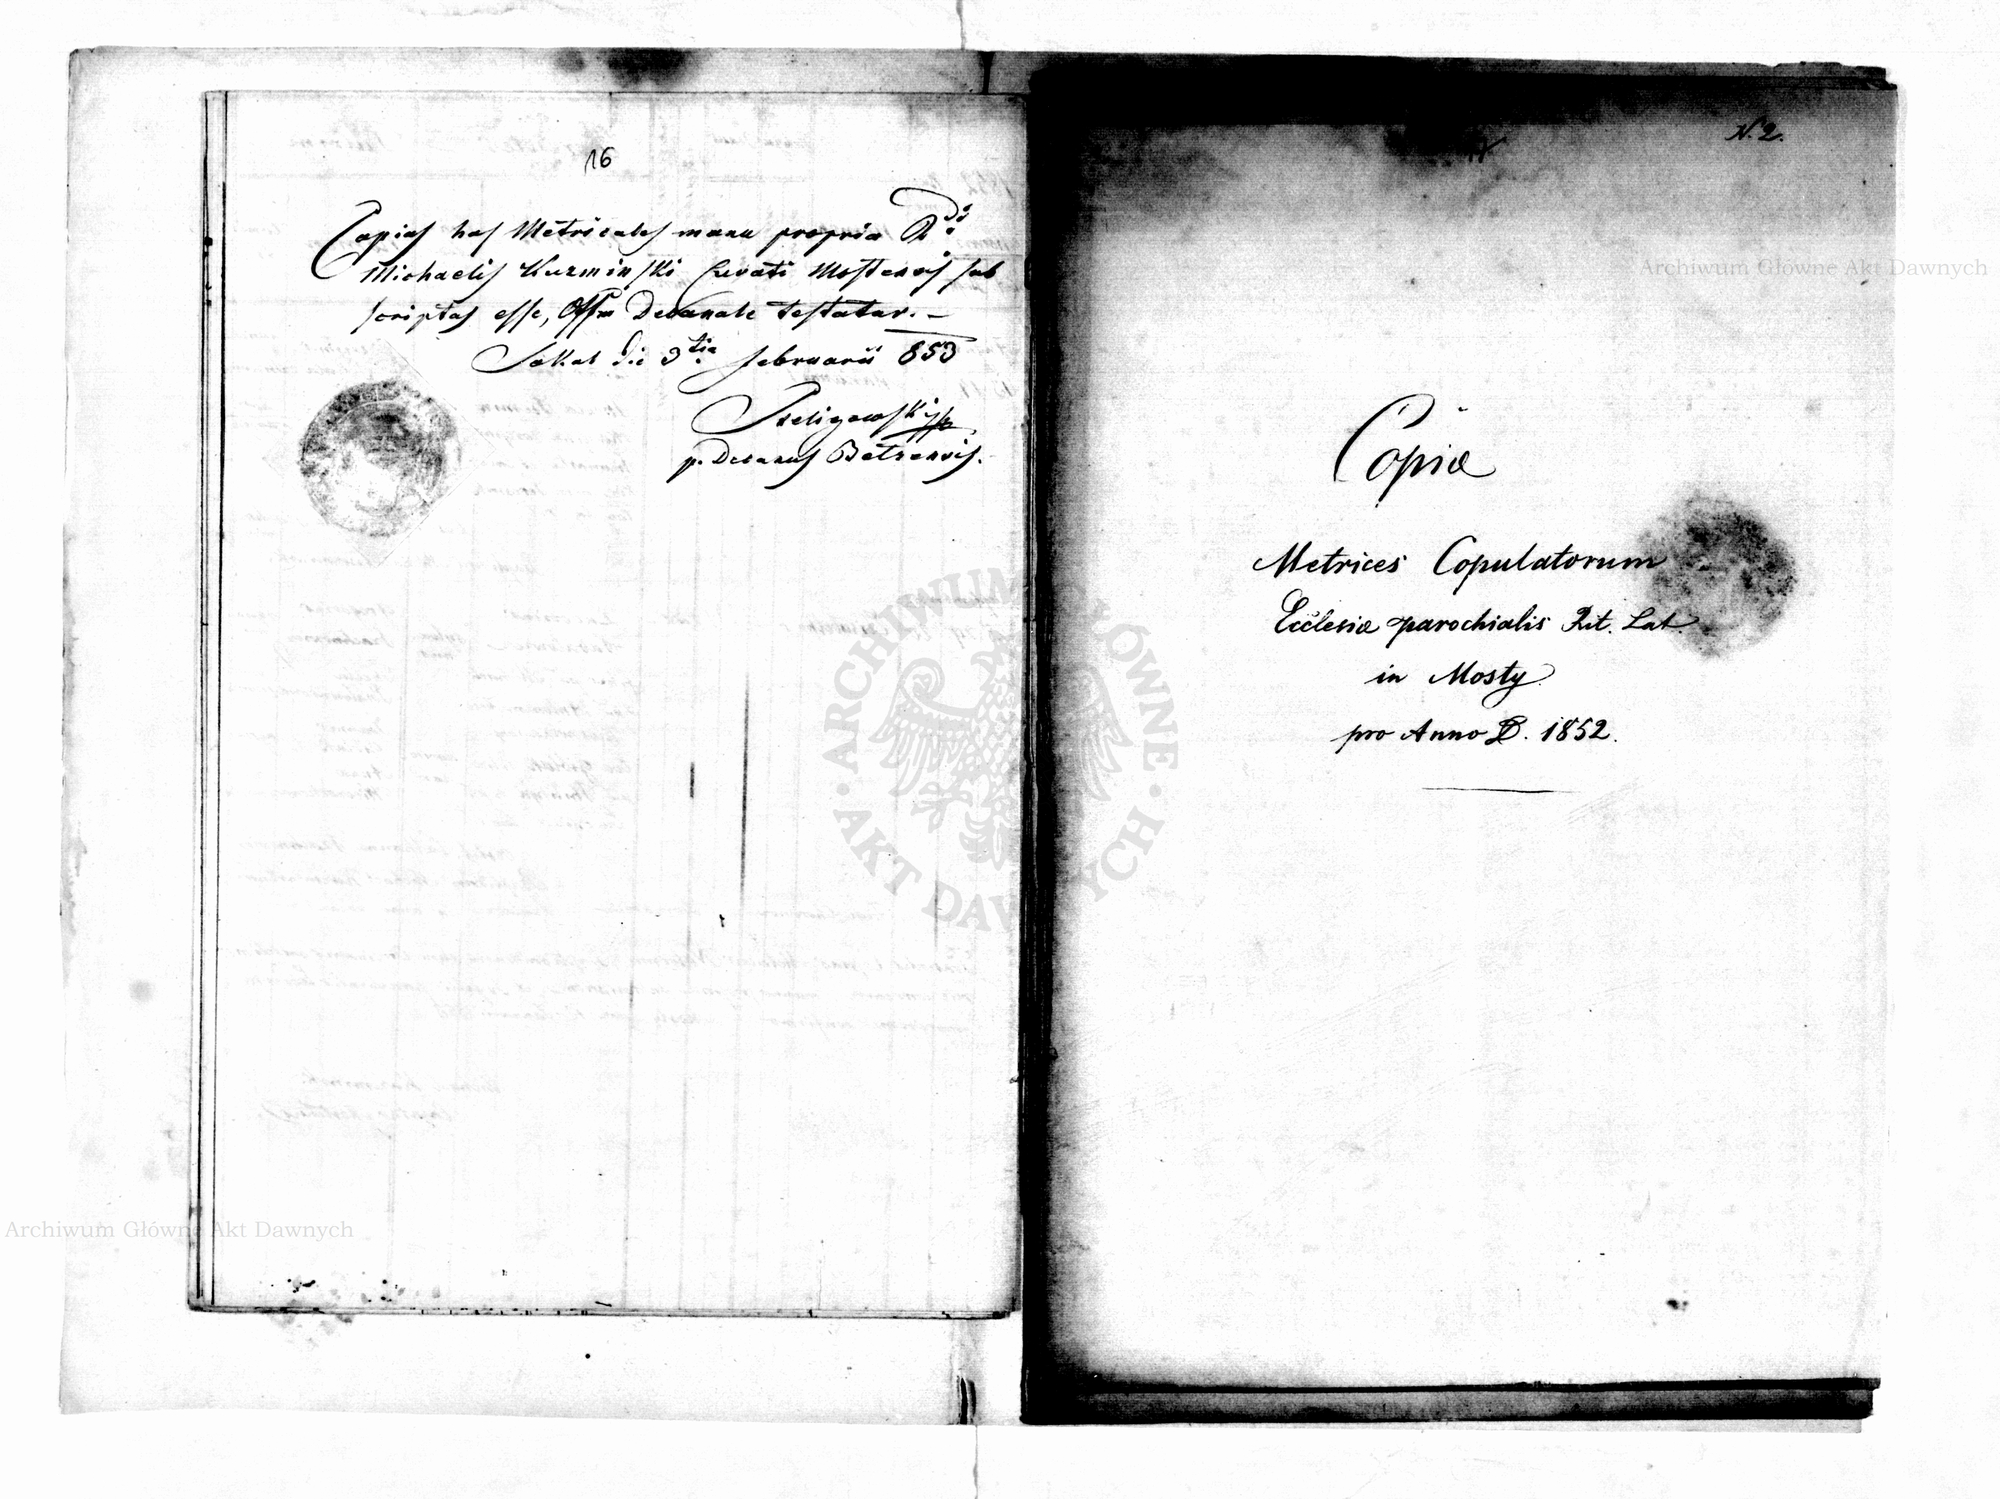 16
Copias has Metricales manu propria Rdi
Michaelis Kuzminski Curati Mostensis sub
scriptas esse, Offm Decanale testatur. –
Sokal die 3tia februarii 853
p. Decanus Belzensis.
N. 2.
17
Copiæ
Metrices Copulatorum
Ecclesiæ parochialis Rit. Lat.
in Mosty
pro Anno D. 1852.
Archiwum Główne Akt Dawnych
Archiwum Główne Akt Dawnych
ARCHIWUM GŁÓWNE
AKT DAWNYCH